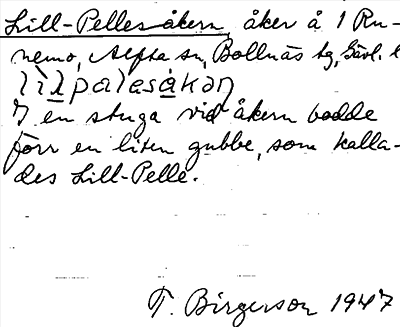 Lill-Pelles åkern, åker å 1 Ru-
nemo, Alfta sn, Bollnäs tg, Gävl. l
lilpalesåkəɳ
I en stuga vid åkern bodde
förr en liten gubbe, som kalla-
des Lill-Pelle.
T. Birgerson 1947